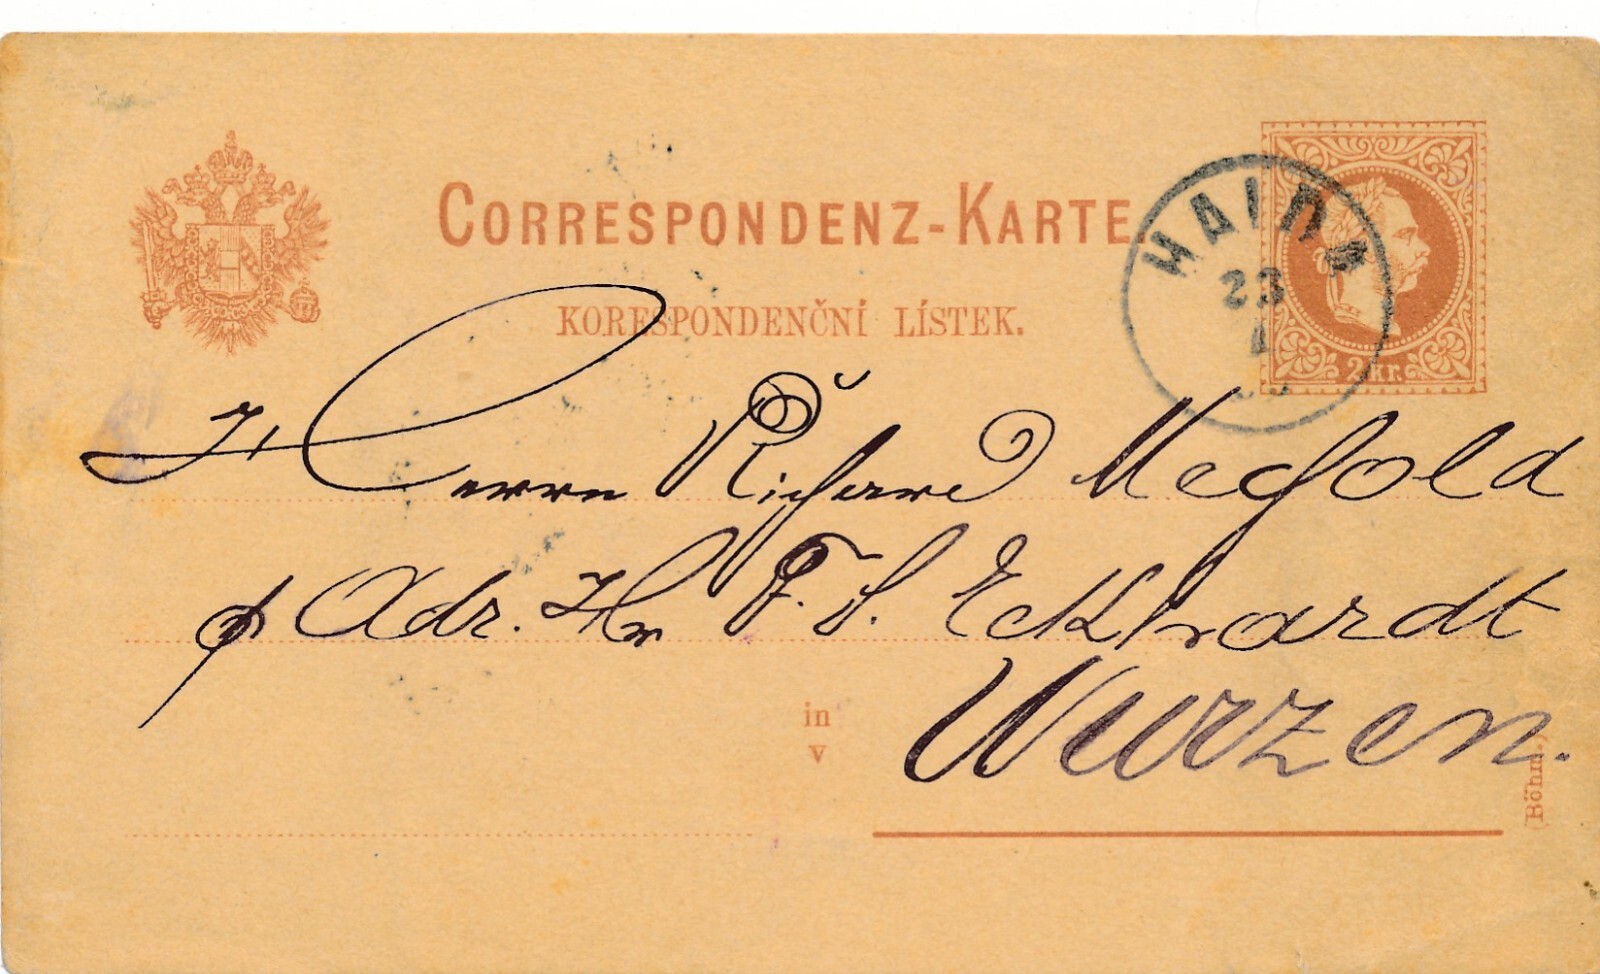 CORRESPONDENZ-KARTE.
KORESPONDENČNÍ LÍSTEK.
HAIDA
23
1
2 kr.
Herrn Richard
p Adr. Hr F. S. Eckhardt
in
v
Wurzen.
(Böhm.)